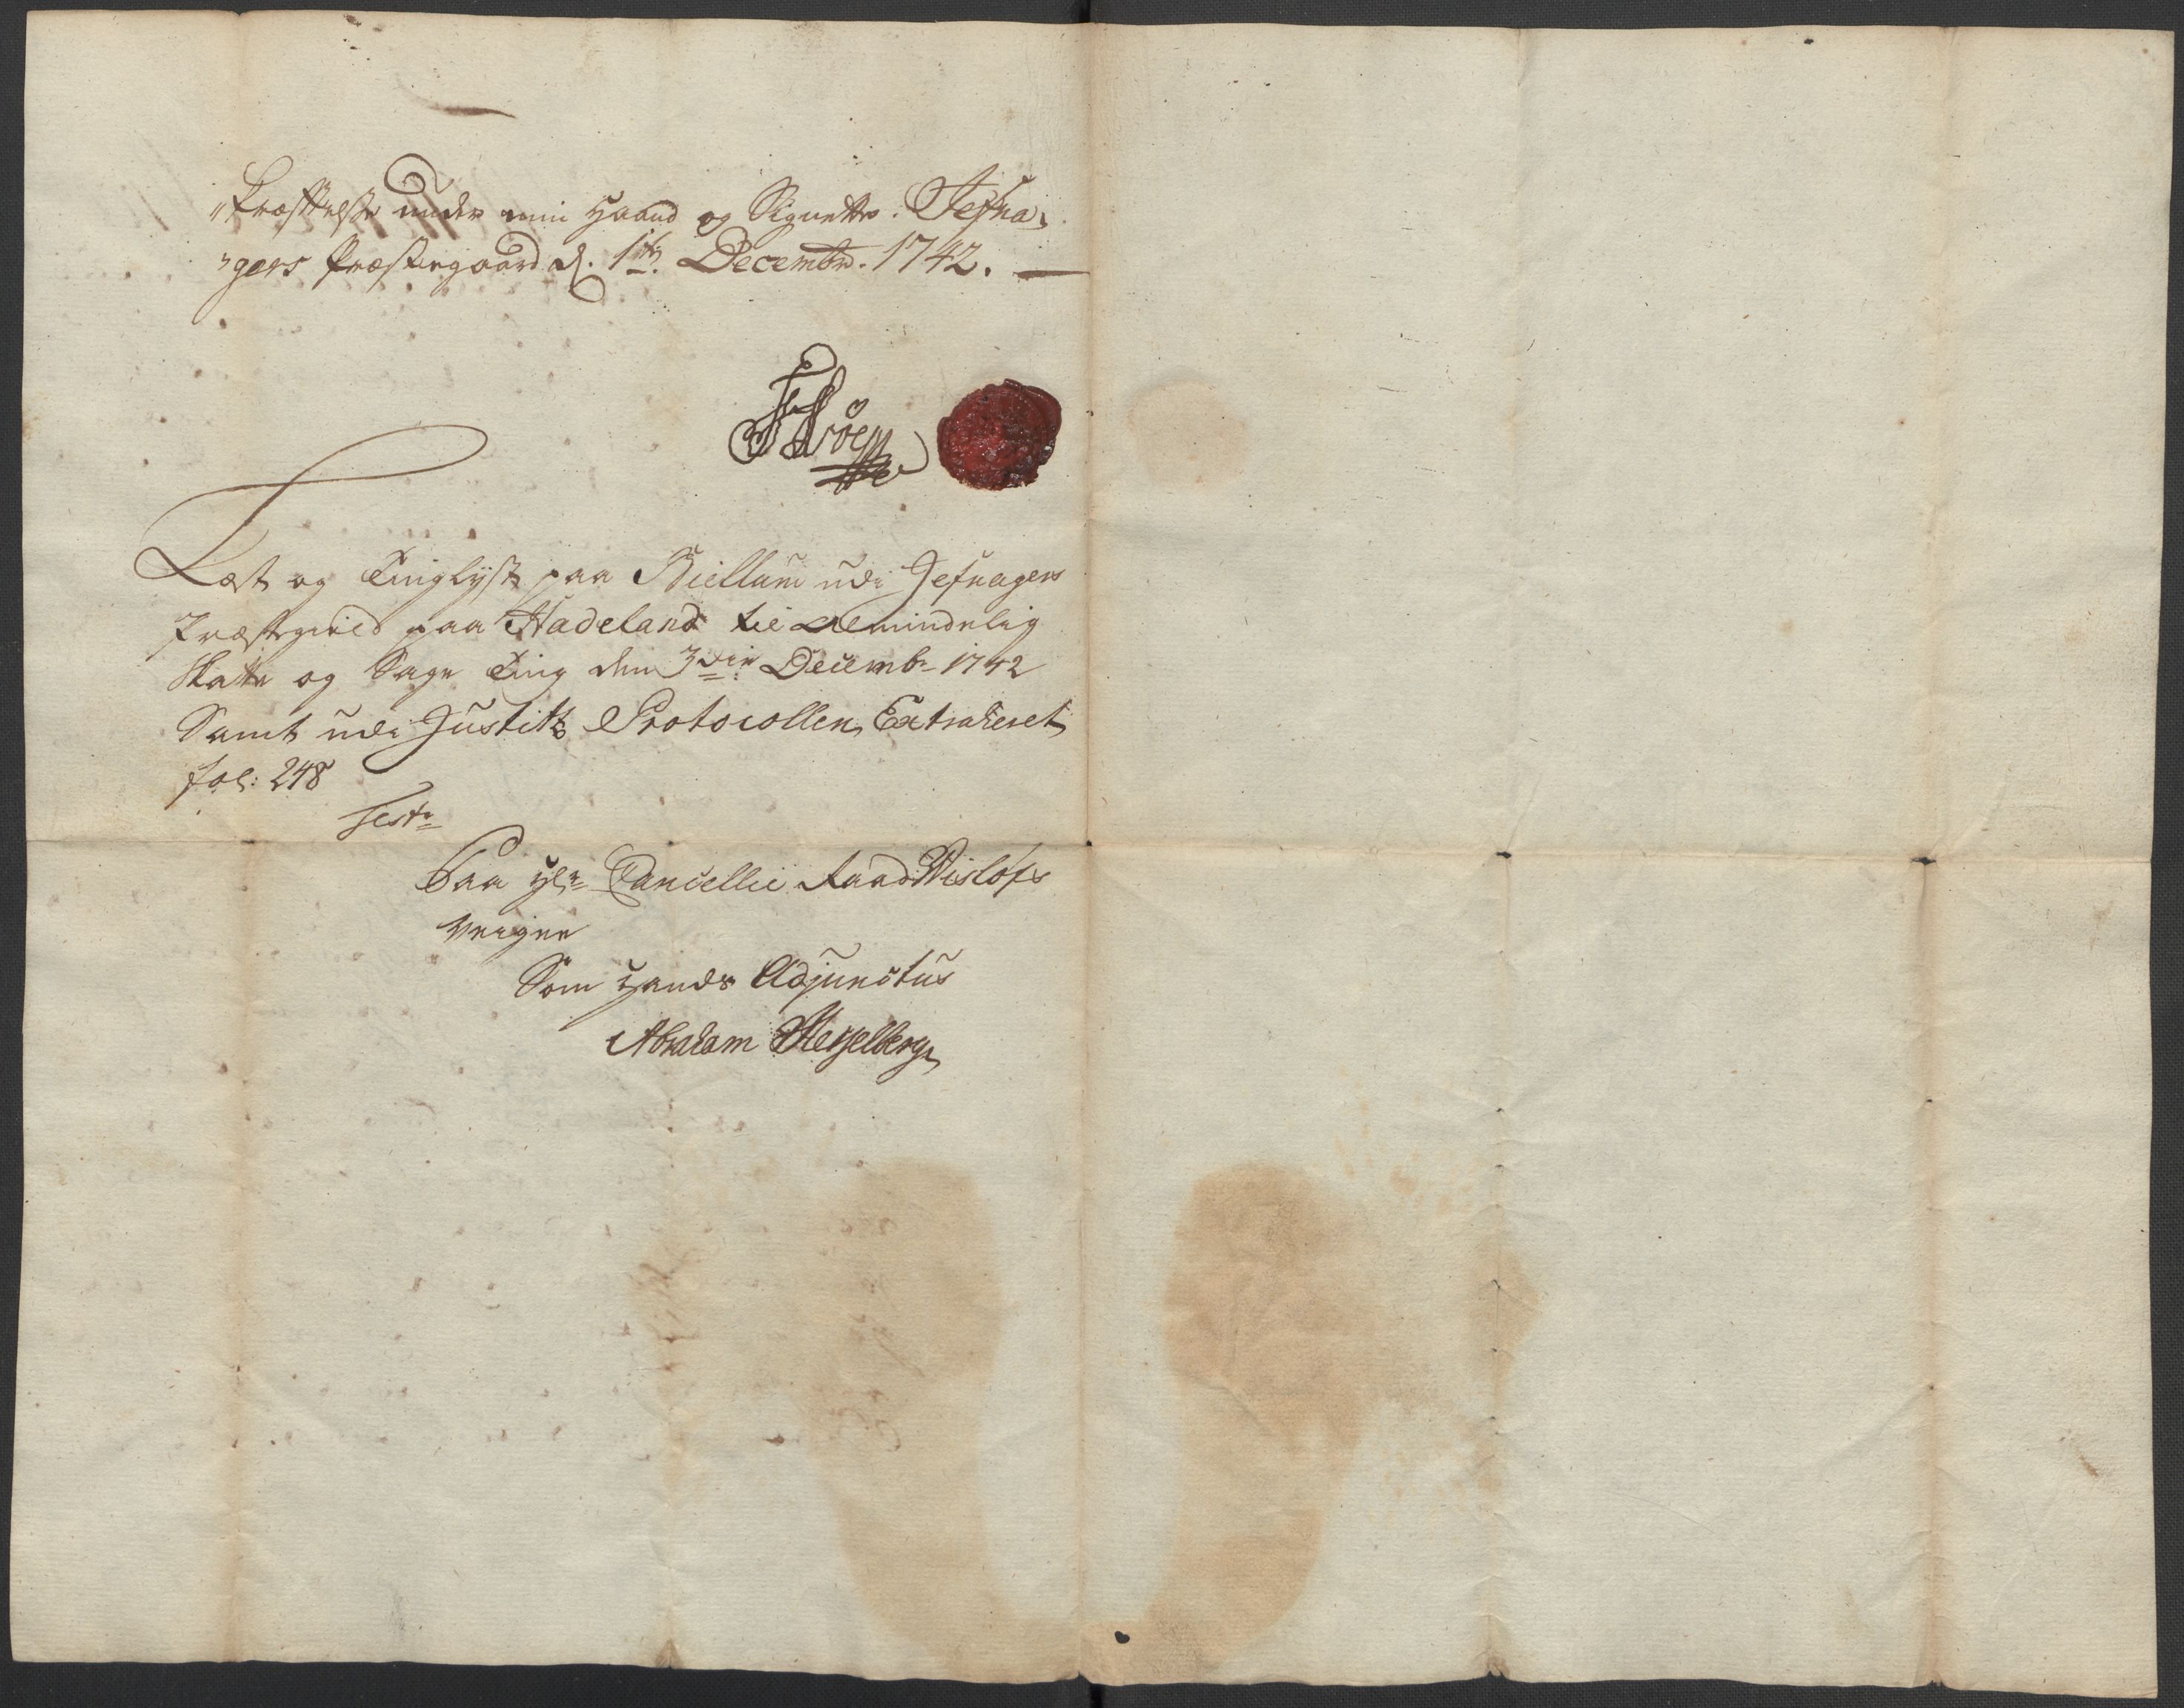 "kræftelse under min Haand og Signette. Jefna,
"gers Præstegaard d. 1te Decembr. 1742.
Læst og Tinglyst paa Biellum udi Jefnagers
Præstegield paa Hadeland til Almindelig
Skatte og Sage Ting den 3die Decembr 1742
Samt udi Justitz Protocollen Extraheret
fol: 248
Test:
Paa Hr Cancellie Raad Wisløfs
Veigne
Som Hands Adjunctus
Abraham Hesselberg